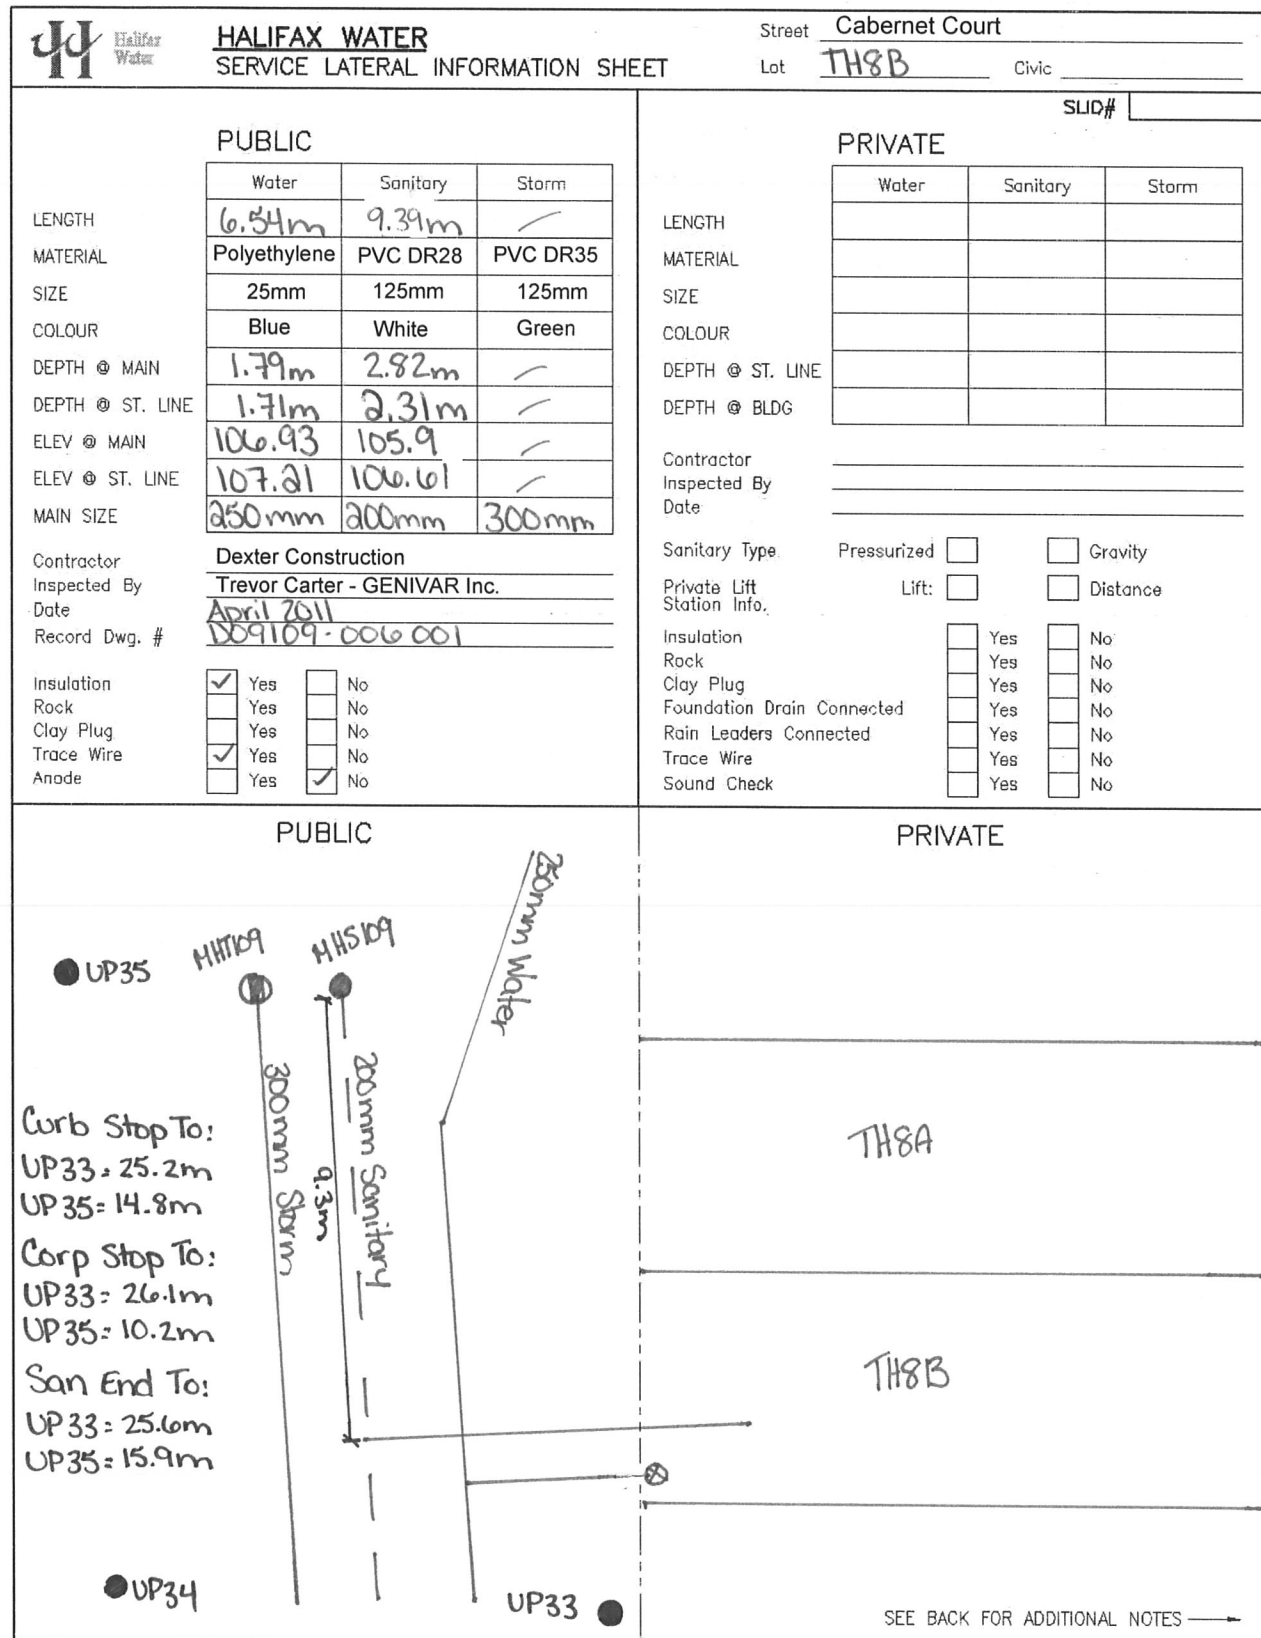 Halifax Water
HALIFAX WATER
SERVICE LATERAL INFORMATION SHEET
Street Cabernet Court
Lot TH8B Civic
SLID#
PUBLIC
Water Sanitary Storm
LENGTH 6.54m 9.39m —
MATERIAL Polyethylene PVC DR28 PVC DR35
SIZE 25mm 125mm 125mm
COLOUR Blue White Green
DEPTH @ MAIN 1.79m 2.82m —
DEPTH @ ST. LINE 1.71m 2.31m —
ELEV @ MAIN 106.93 105.9 —
ELEV @ ST. LINE 107.21 106.61 —
MAIN SIZE 250mm 200mm 300mm
Contractor Dexter Construction
Inspected By Trevor Carter - GENIVAR Inc.
Date April 2011
Record Dwg. # D09109-006 001
Insulation ✓ Yes No
Rock Yes No
Clay Plug Yes No
Trace Wire ✓ Yes No
Anode Yes ✓ No
PRIVATE
Water Sanitary Storm
LENGTH
MATERIAL
SIZE
COLOUR
DEPTH @ ST. LINE
DEPTH @ BLDG
Contractor
Inspected By
Date
Sanitary Type Pressurized Gravity
Private Lift Station Info. Lift: Distance
Insulation Yes No
Rock Yes No
Clay Plug Yes No
Foundation Drain Connected Yes No
Rain Leaders Connected Yes No
Trace Wire Yes No
Sound Check Yes No
PUBLIC
UP35
MHT109
MHS109
250mm Water
300mm Storm
9.3m
200mm Sanitary
Curb Stop To:
UP33: 25.2m
UP35= 14.8m
Corp Stop To:
UP33= 26.1m
UP35= 10.2m
San End To:
UP33= 25.6m
UP35= 15.9m
UP34
UP33
PRIVATE
TH8A
TH8B
SEE BACK FOR ADDITIONAL NOTES